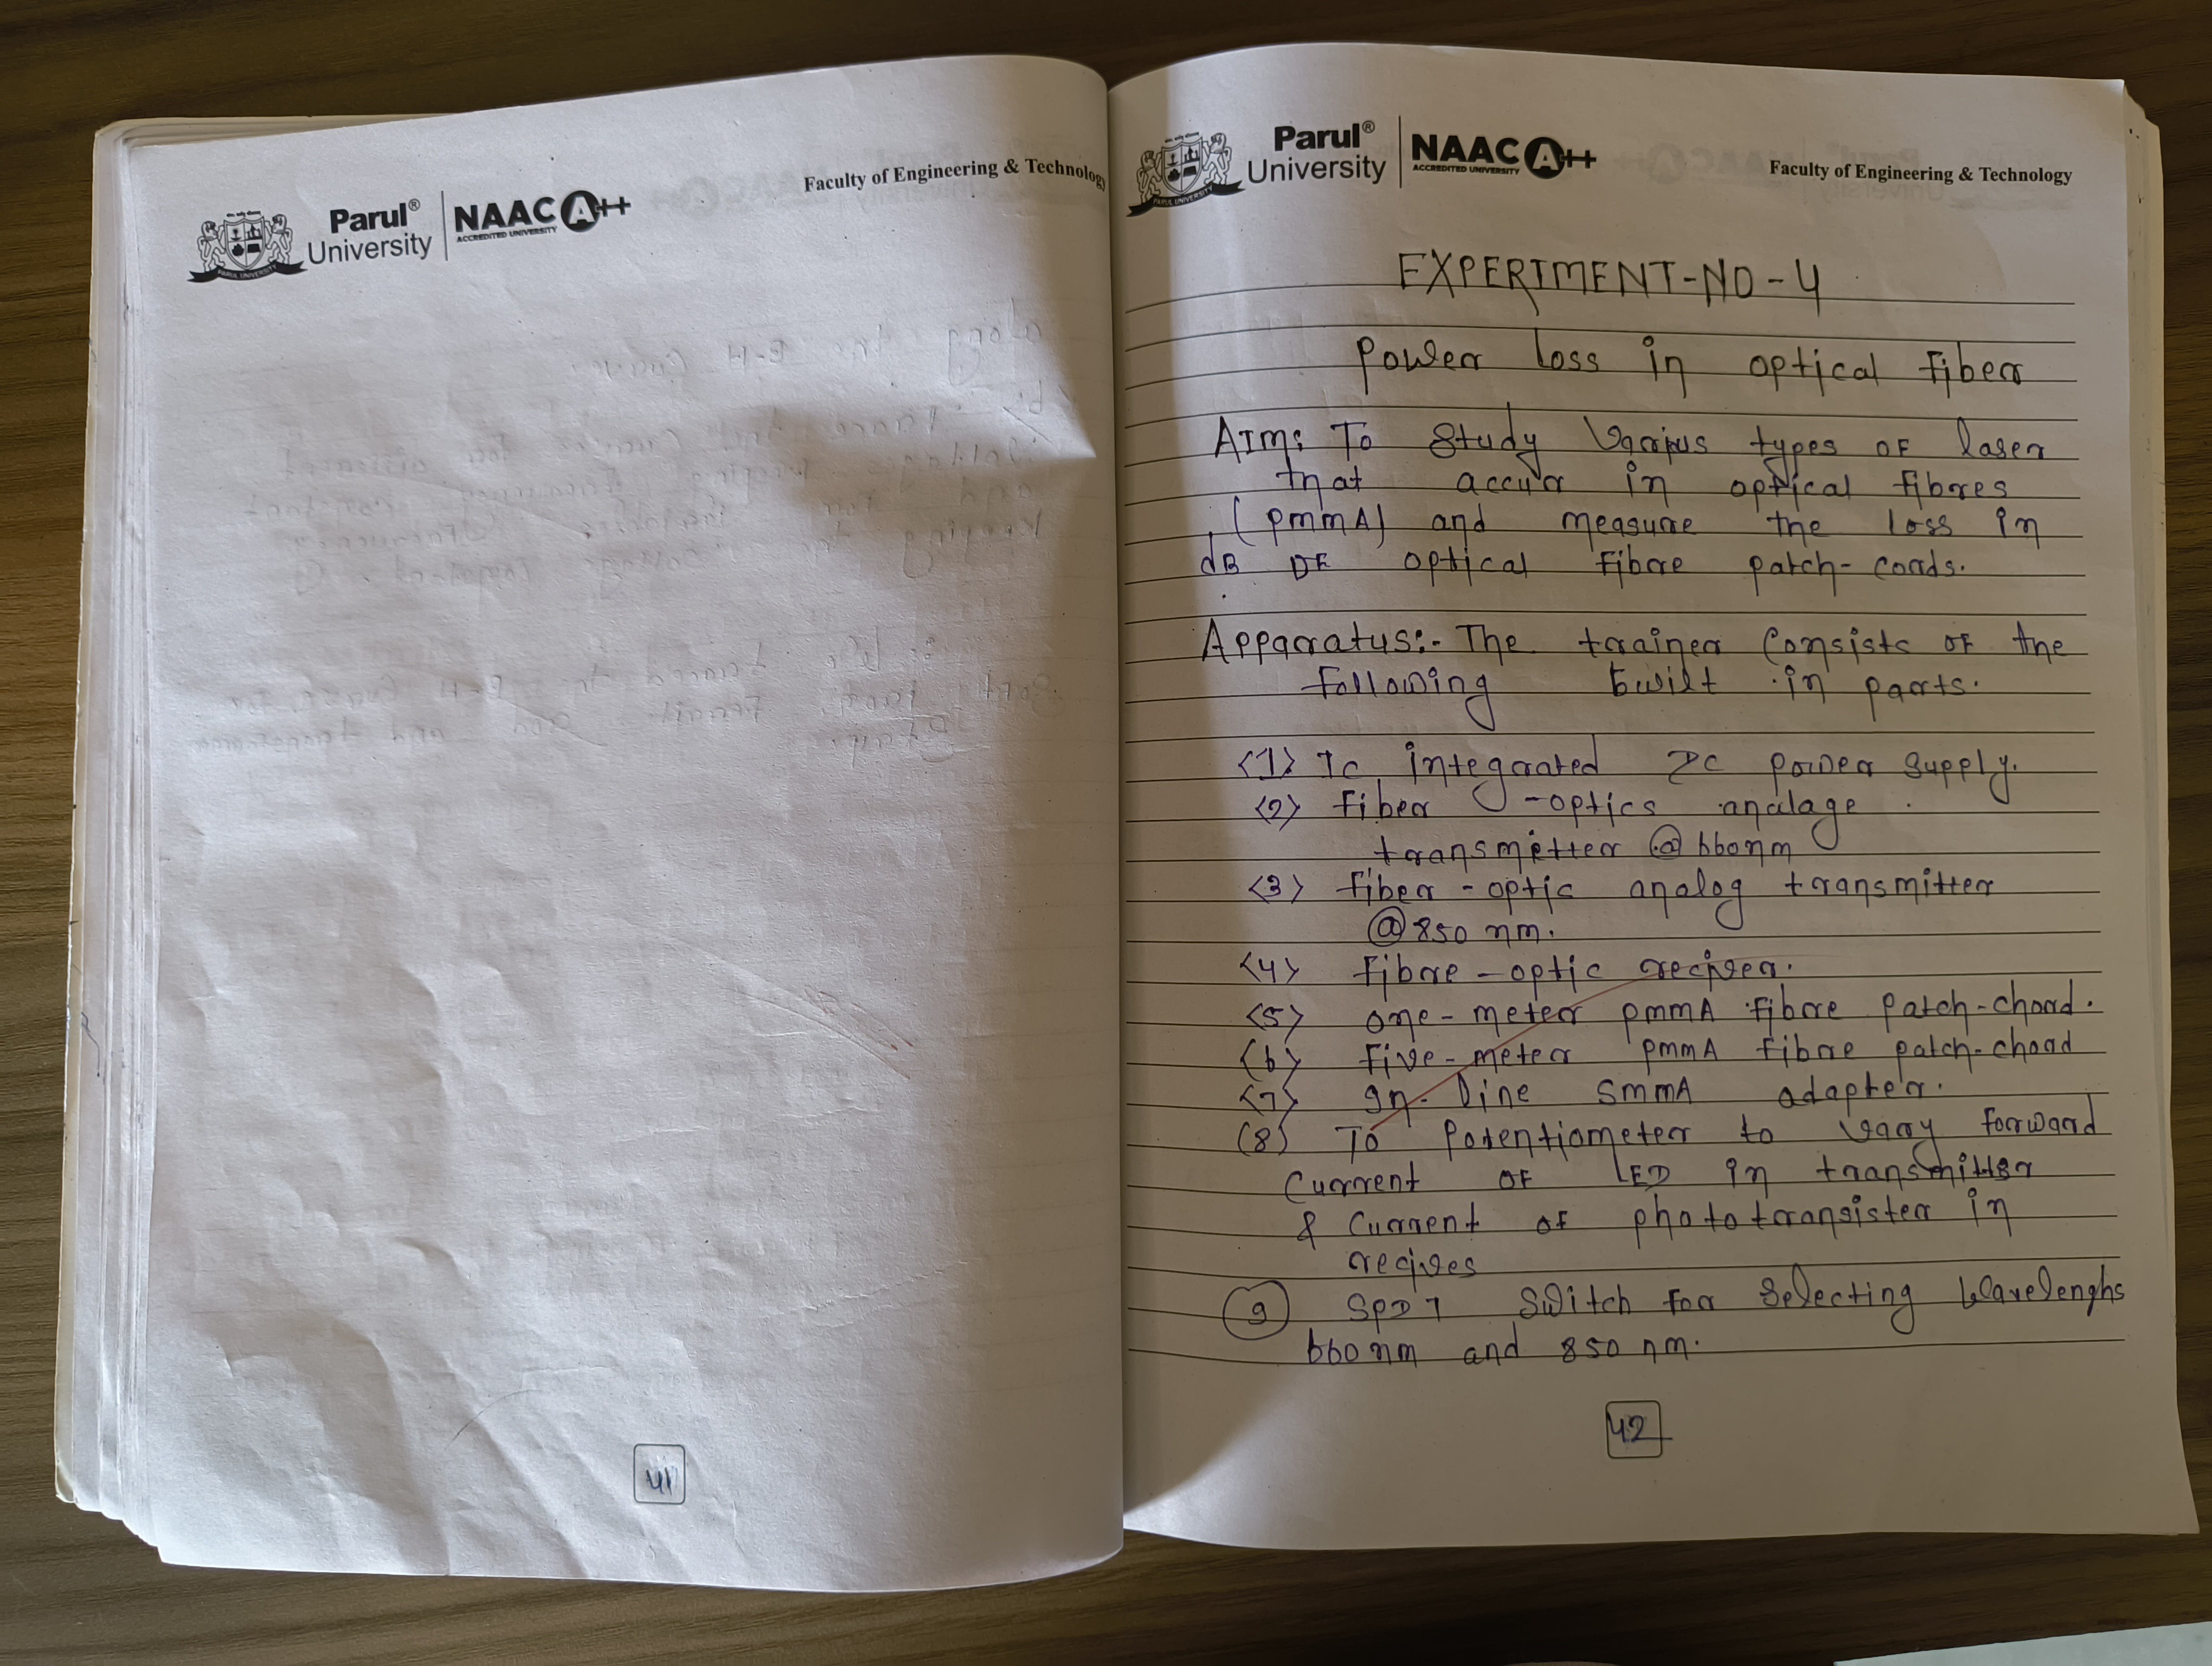 Parul®
University
NAAC A++
ACCREDITED UNIVERSITY
PARUL UNIVERSITY
Faculty of Engineering & Technology
41
Parul®
University
NAAC A++
ACCREDITED UNIVERSITY
PARUL UNIVERSITY
Faculty of Engineering & Technology
EXPERIMENT-NO-4
Power loss in optical fiber
AIM: To study Various types of laser
that accur in optical fibres
(PmmA) and measure the loss in
dB OF optical fibre patch-cords.
Apparatus:- The trainer Consists of the
following built in parts.
<1> Ic integrated DC power supply.
<2> fiber -optics analage
transmitter @ 660nm
<3> fiber-optic analog transmitter
@ 850 nm.
<4> fibre-optic reciver.
<5> one-meter PmmA fibre patch-chord.
(6) five-meter PmmA fibre patch-chord
<7> In-line SmmA adapter.
(8) To Potentiometer to vary forward
Current OF LED in transmitter
& Current OF phototransister in
recives
9 SPDT Switch for selecting Wavelenghs
660 nm and 850 nm.
42